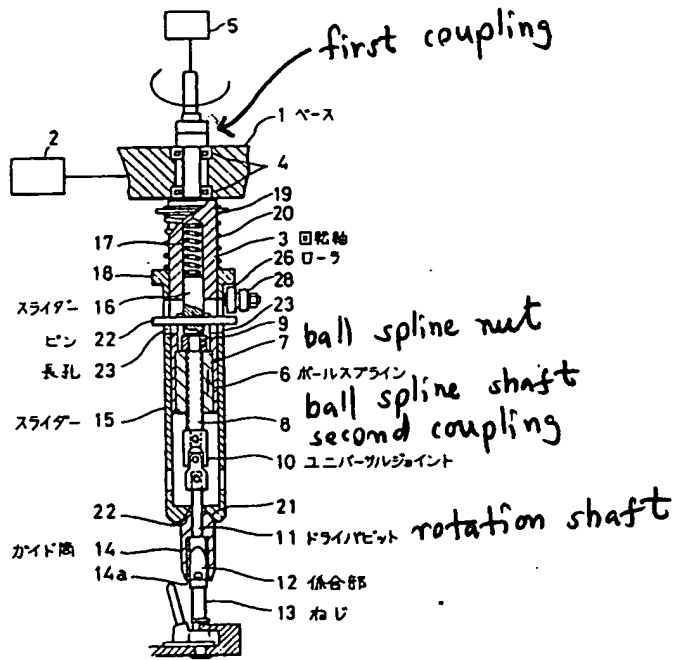 5
first coupling
1 ベース
2
4
19
20
17
3 回転軸
18
26 ローラ
28
スライダー 16
23
9
ピン 22
7 ball spline nut
長孔 23
6 ボールスプライン
ball spline shaft
スライダー 15
8 second coupling
10 ユニバーサルジョイント
21
22
11 ドライバビット rotation shaft
ガイド筒 14
14a
12 係合部
13 ねじ